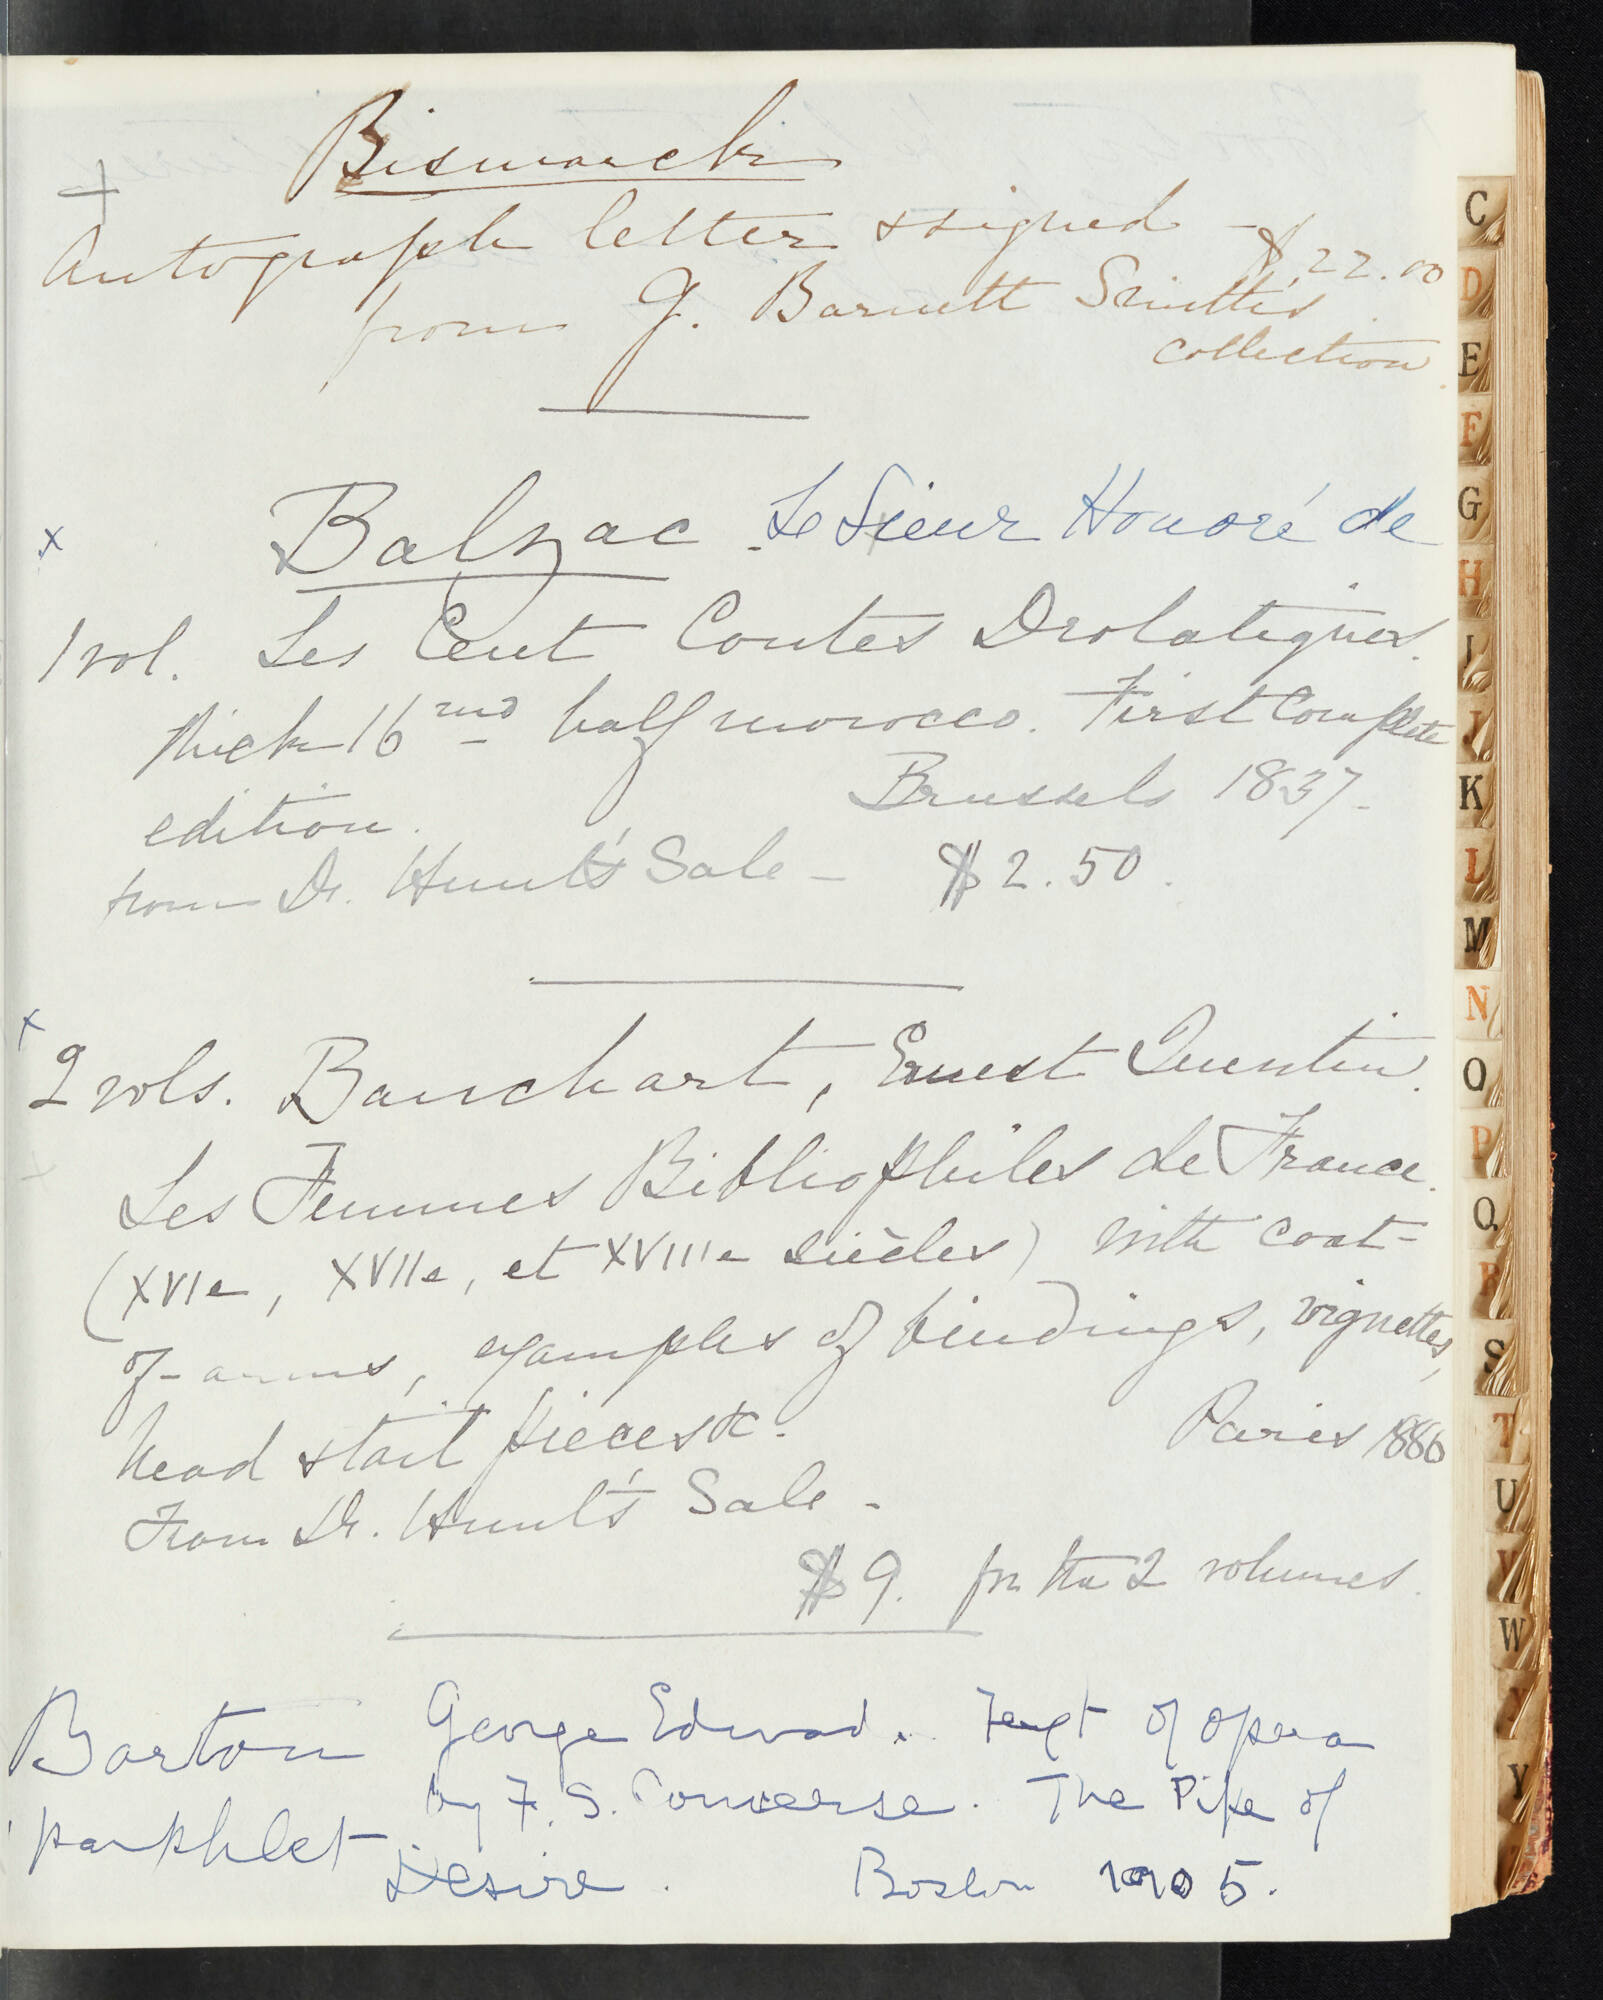 Bismarck
+
Autograph letter & signed - $22.00
from G. Barnett Smith's
collection.
x Balzac. Le Sieur Honoré de
1 vol. Les Cent Contes Drolatiques.
thick 16mo half morocco. First Complete
edition. Brussels 1837-
from Dr. Hunt's Sale - $2.50.
x
2 vols. Bauchart, Ernest Quentin.
Les Femmes Bibliophiles de France.
(XVIe, XVIIe, et XVIIIe siècles) with coat-
of-arms, examples of bindings, vignettes,
head & tail pieces &c. Paris 1886
From Dr. Hunt's Sale -
$9. for the 2 volumes.
Barton George Edward. Text of opera
by F. S. Converse. The Pipe of
pamphlet Desire. Boston 1905.
C
D
E
F
G
H
I
J
K
L
M
N
O
P
Q
R
S
T
U
V
W
Y
Y